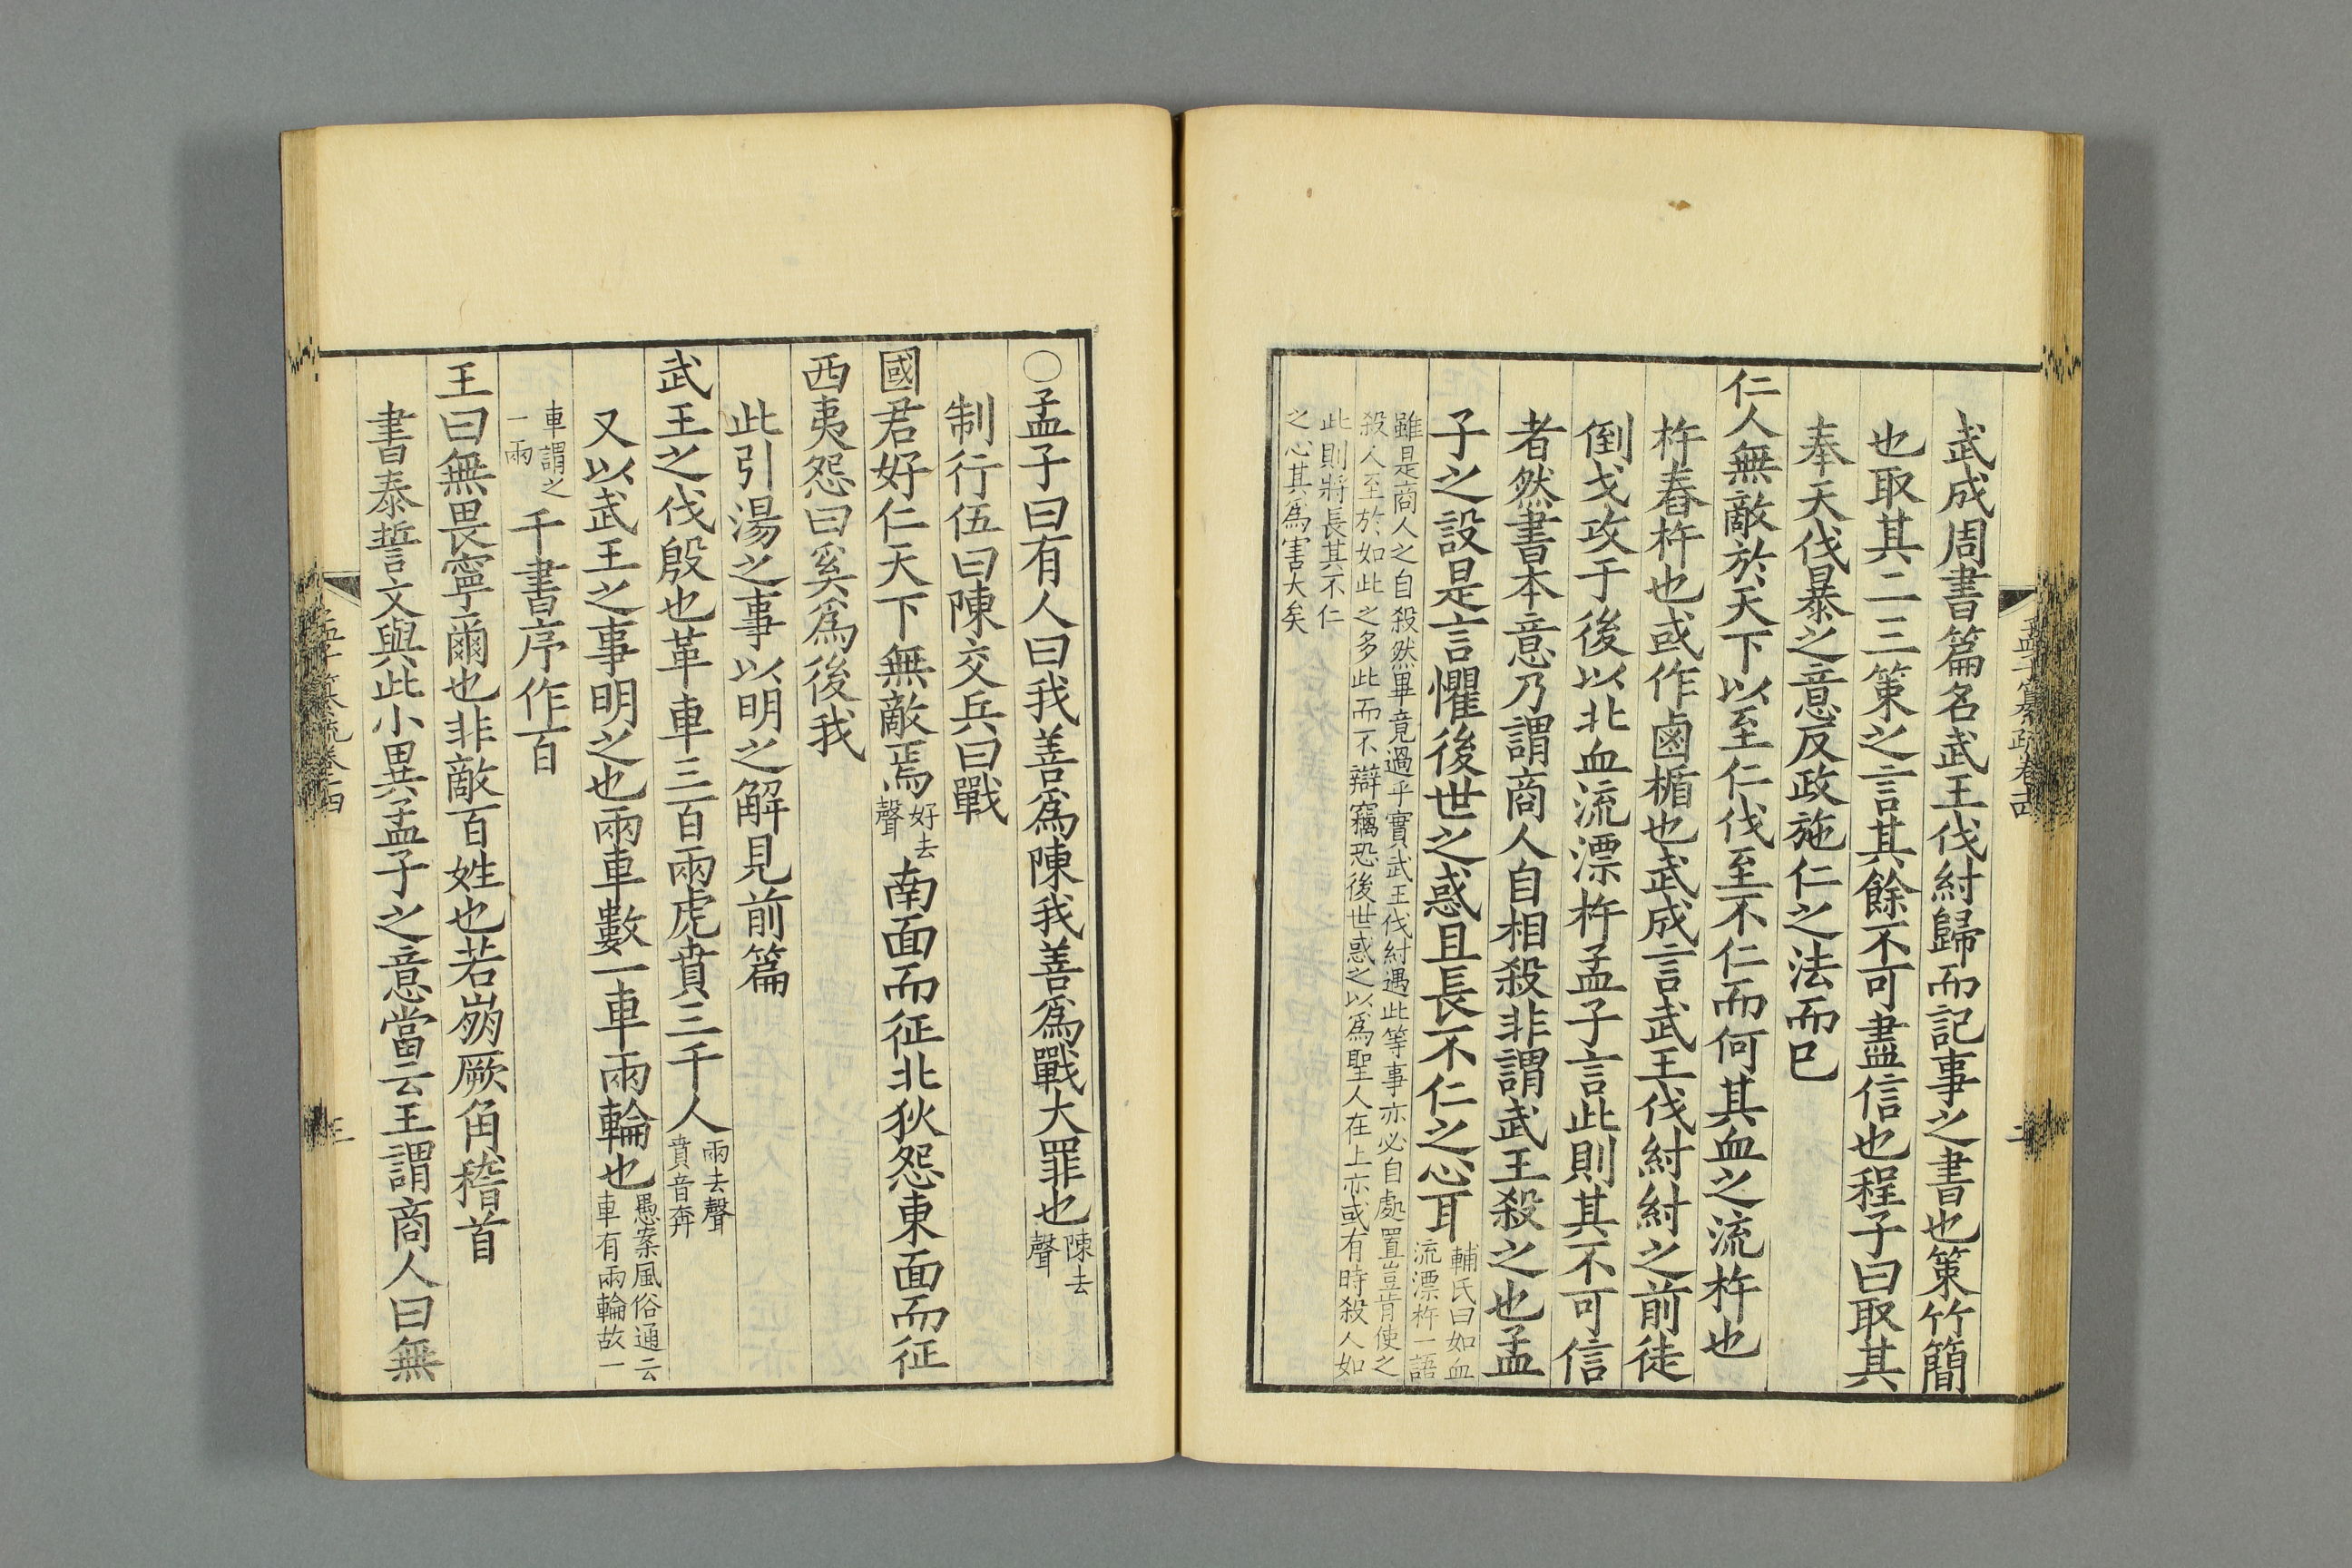 武成周書篇名武王伐紂歸而記事之書也策竹簡
也取其二三策之言其餘不可盡信也程子曰取其
奉天伐暴之意反政施仁之法而已
仁人無敵於天下以至仁伐至不仁而何其血之流杵也
杵舂杵也或作鹵楯也武成言武王伐紂紂之前徒
倒戈攻于後以北血流漂杵孟子言此則其不可信
者然書本意乃謂商人自相殺非謂武王殺之也孟
子之設是言懼後世之惑且長不仁之心耳
輔氏曰如血
流漂杵一語
雖是商人之自殺然畢竟過乎實武王伐紂遇此等事亦必自處置豈肯使之
殺人至於如此之多此而不辯竊恐後世惑之以爲聖人在上亦或有時殺人如
此則將長其不仁
之心其爲害大矣
孟子纂疏卷十四
二
○孟子曰有人曰我善爲陳我善爲戰大罪也
陳去
聲
制行伍曰陳交兵曰戰
國君好仁天下無敵焉
好去
聲
南面而征北狄怨東面而征
西夷怨曰奚爲後我
此引湯之事以明之解見前篇
武王之伐殷也革車三百兩虎賁三千人
兩去聲
賁音奔
又以武王之事明之也兩車數一車兩輪也
愚案風俗通云
車有兩輪故一
車謂之
一兩
千書序作百
王曰無畏寧爾也非敵百姓也若崩厥角稽首
書泰誓文與此小異孟子之意當云王謂商人曰無
孟子纂疏卷十四
三